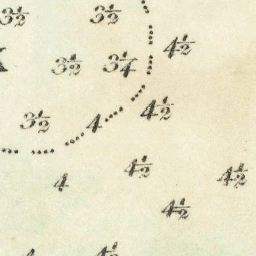 3½ 3½
4½
3½ 3¼
4½
3½ 4
4½
4 4½
4½
4½